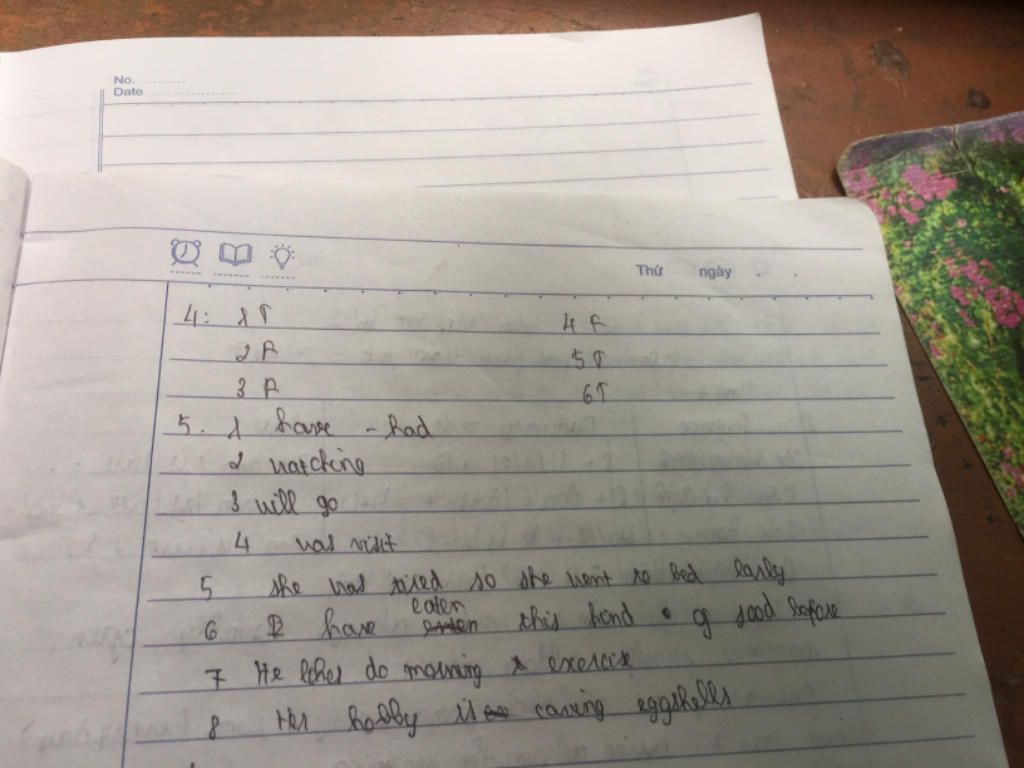 No. ............
Date ......................
Thứ ngày
4: 1 T 4 F
2 F 5 T
3 F 6 T
5. 1 have - had
2 watching
3 will go
4 was visit
5 she was tired so she went to bed early
eaten
6 I have this kind of food before
7 He likes do morning exercise
8 His hobby is carving eggshells